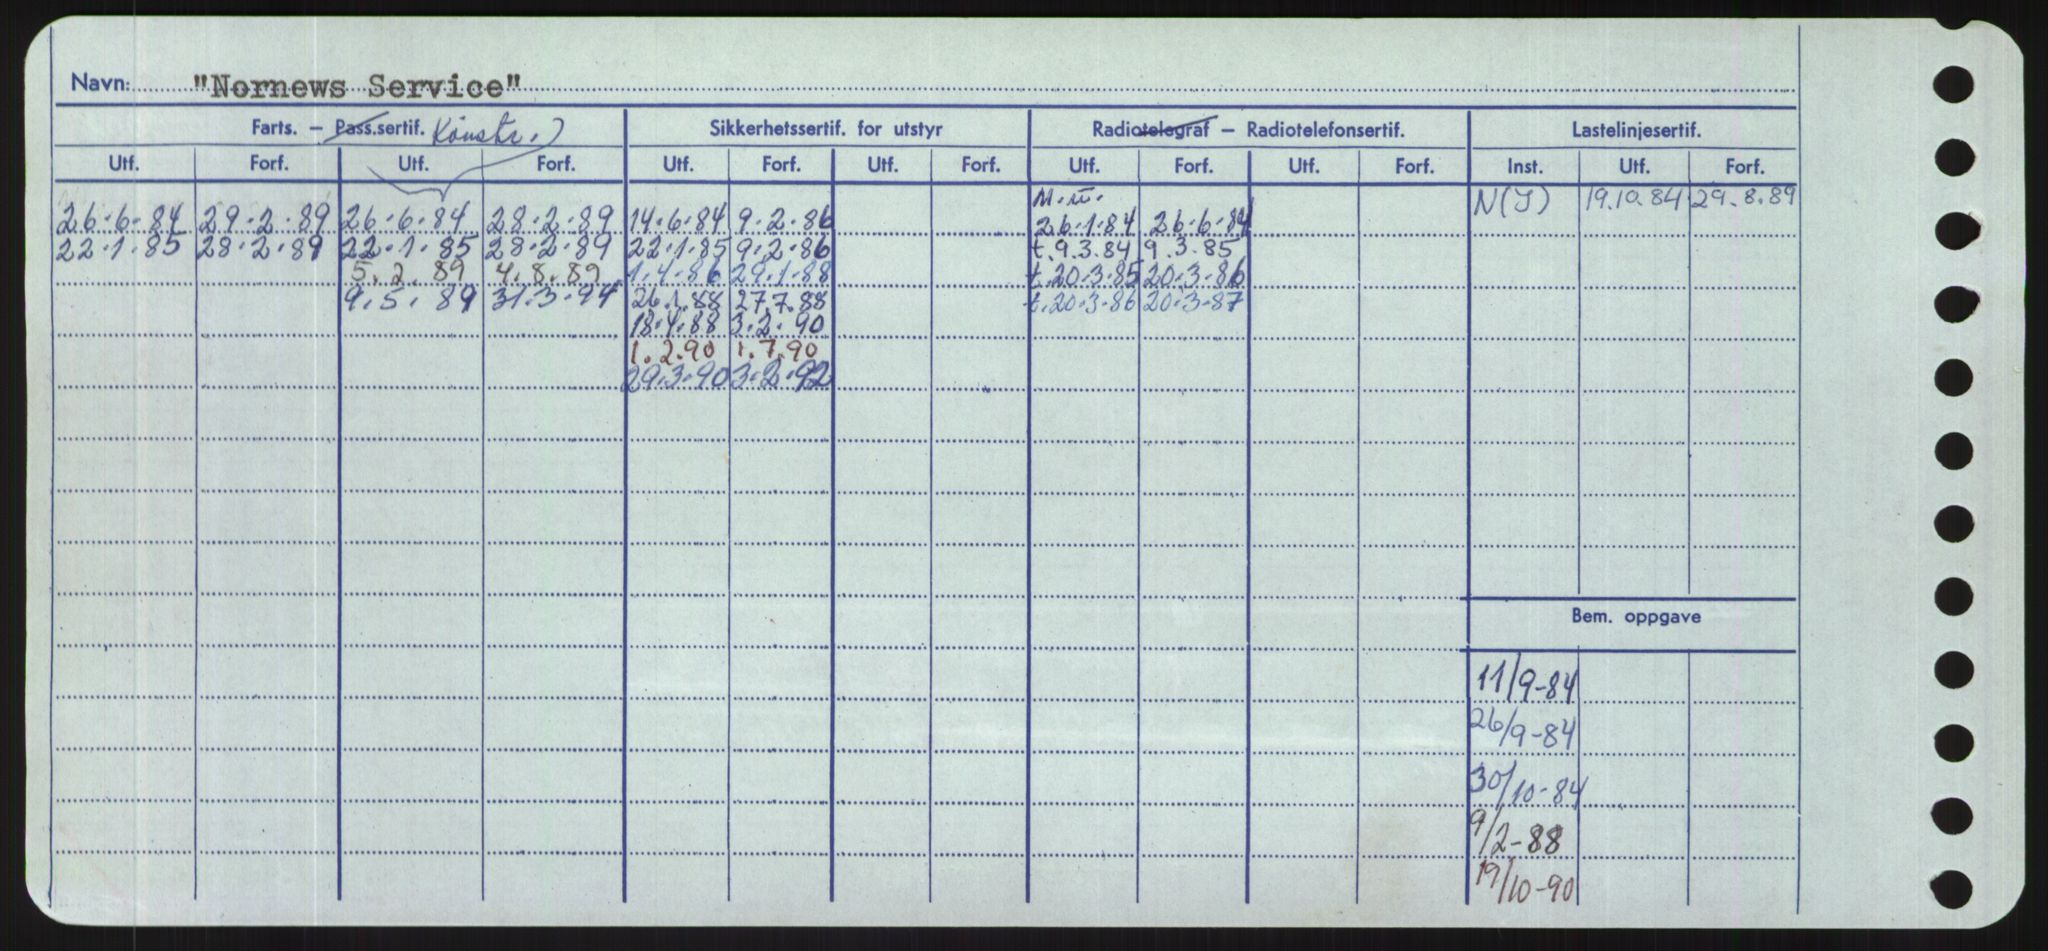 Navn: "Nornews Service"
Farts. – Pass.sertif. Konstr. Sikkerhetssertif. for utstyr Radiotelegraf – Radiotelefonsertif. Lastelinjesertif.
Utf. Forf. Utf. Forf. Utf. Forf. Utf. Forf. Utf. Forf. Utf. Forf. Inst. Utf. Forf.
N(I) 19.10.84 29.8.89
26.6.84 29.2.89 26.6.84 28.2.89 14.6.84 9.2.86 26.1.84 26.6.84
22.1.85 28.2.89 22.1.85 28.2.89 22.1.85 9.2.86 t.9.3.84 9.3.85
5.2.89 4.8.89 1.4.86 29.1.88 t.20.3.85 20.3.86
9.5.89 31.3.94 26.1.88 27.7.88 t.20.3.86 20.3.87
18.4.88 3.2.90
1.2.90 1.7.90
29.3.90 3.2.92
Bem. oppgave
11/9-84
26/9-84
30/10-84
9/2-88
19/10-90